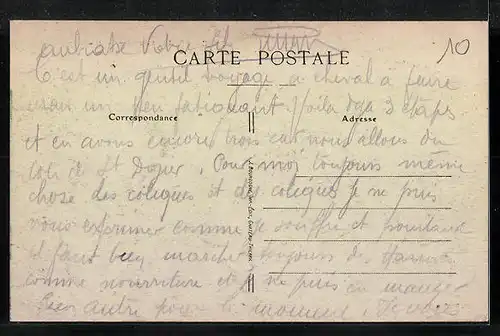 embrasse Votre fils
CARTE POSTALE
10
C'est un gentil voyage à cheval à faire
mais un peu fatiguant. Voila deja 3 etapes
Correspondance
Adresse
et en avons encore trois car nous allons du
coté de St Dizier. Pour moi toujours meme
chose des coliques et des coliques je ne puis
vous exprimer comme je souffre et pourtant
il faut bien marcher toujours des
comme nourriture et je ne puis en manger
rien autre pour le moment.